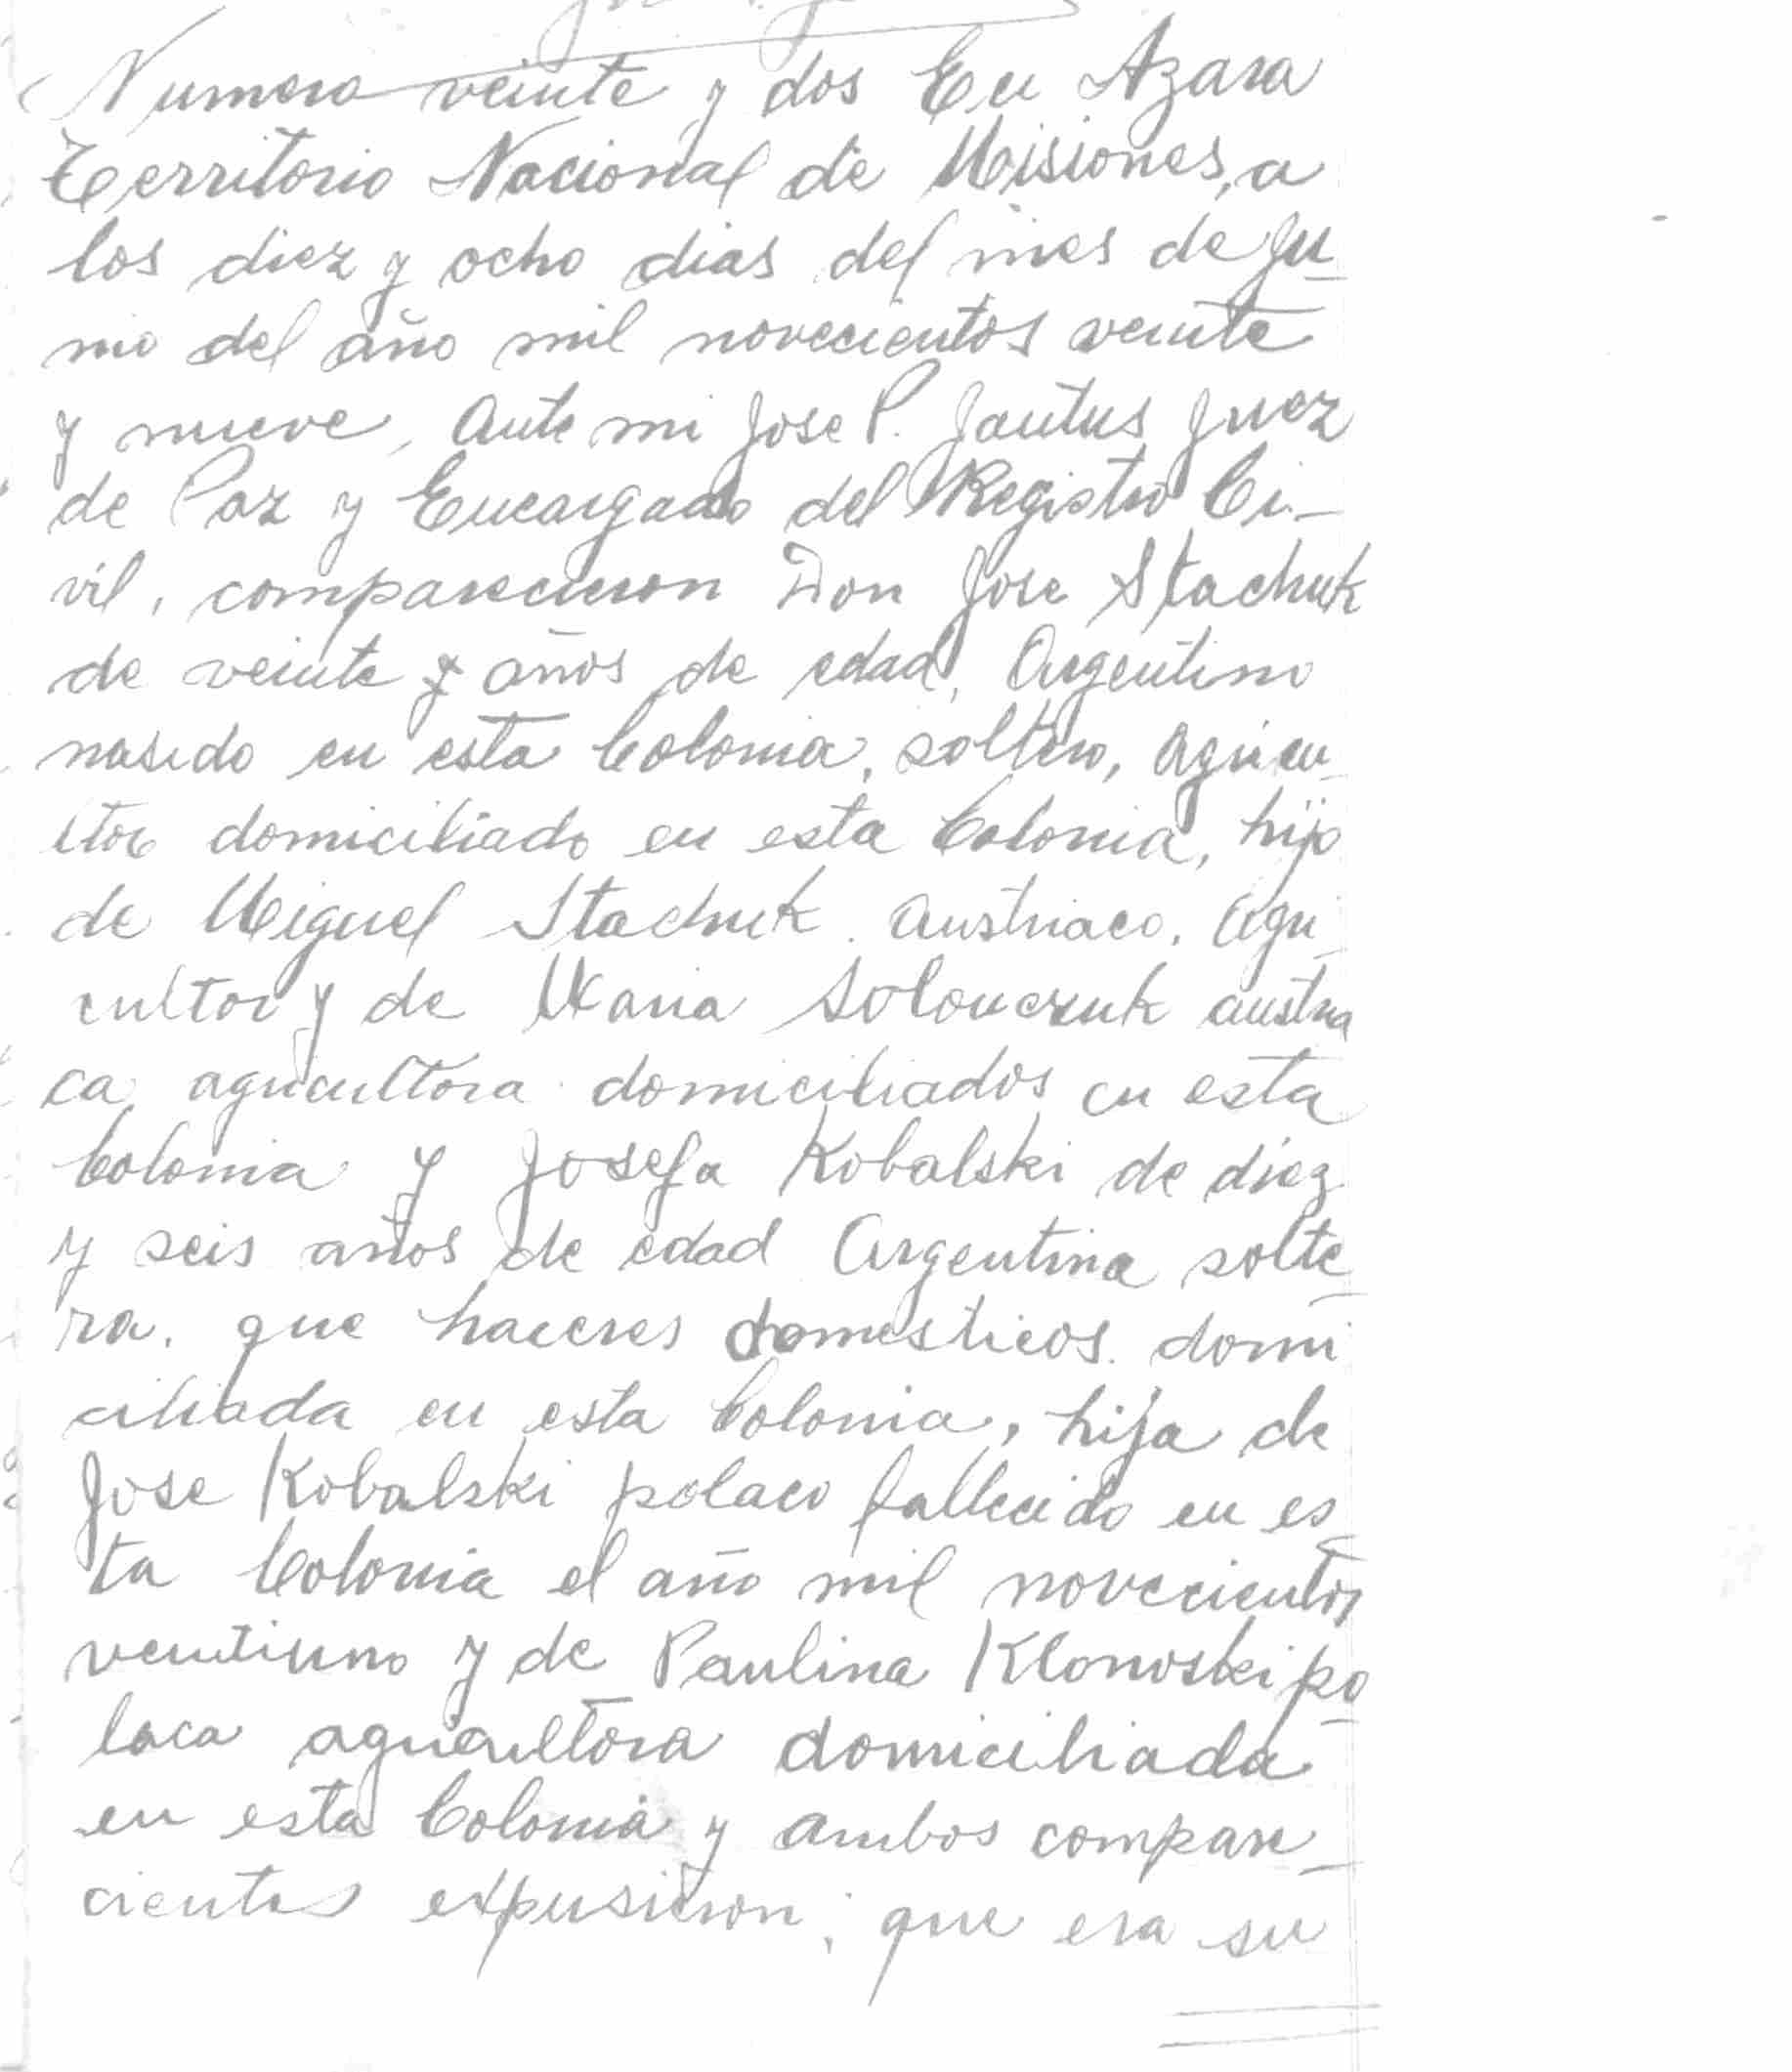 Numero veinte y dos En Azara
Territorio Nacional de Misiones, a
los diez y ocho dias del mes de Ju
nio del año mil novecientos veinte
y nueve, Ante mi Jose P. Jautus Juez
de Paz y Encargado del Registro Ci-
vil, comparecieron Don Jose Stachuk
de veinte y años de edad, Argentino
nasido en esta Colonia, soltero, Agricu
ltor domiciliado en esta Colonia, hijo
de Miguel Stachuk. Austriaco, Agri
cultor y de Maria Solonczuk austria
ca agricultora domiciliados en esta
Colonia y Josefa Kobalski de diez
y seis años de edad Argentina solte
ra. que haceres domesticos. domi
ciliada en esta Colonia, hija de
Jose Kobalski polaco fallecido en es
ta Colonia el año mil novecientos
veintiuno y de Paulina Klonoski po
laca agricultora domiciliada
en esta Colonia y ambos compare
cientes expusieron, que era su